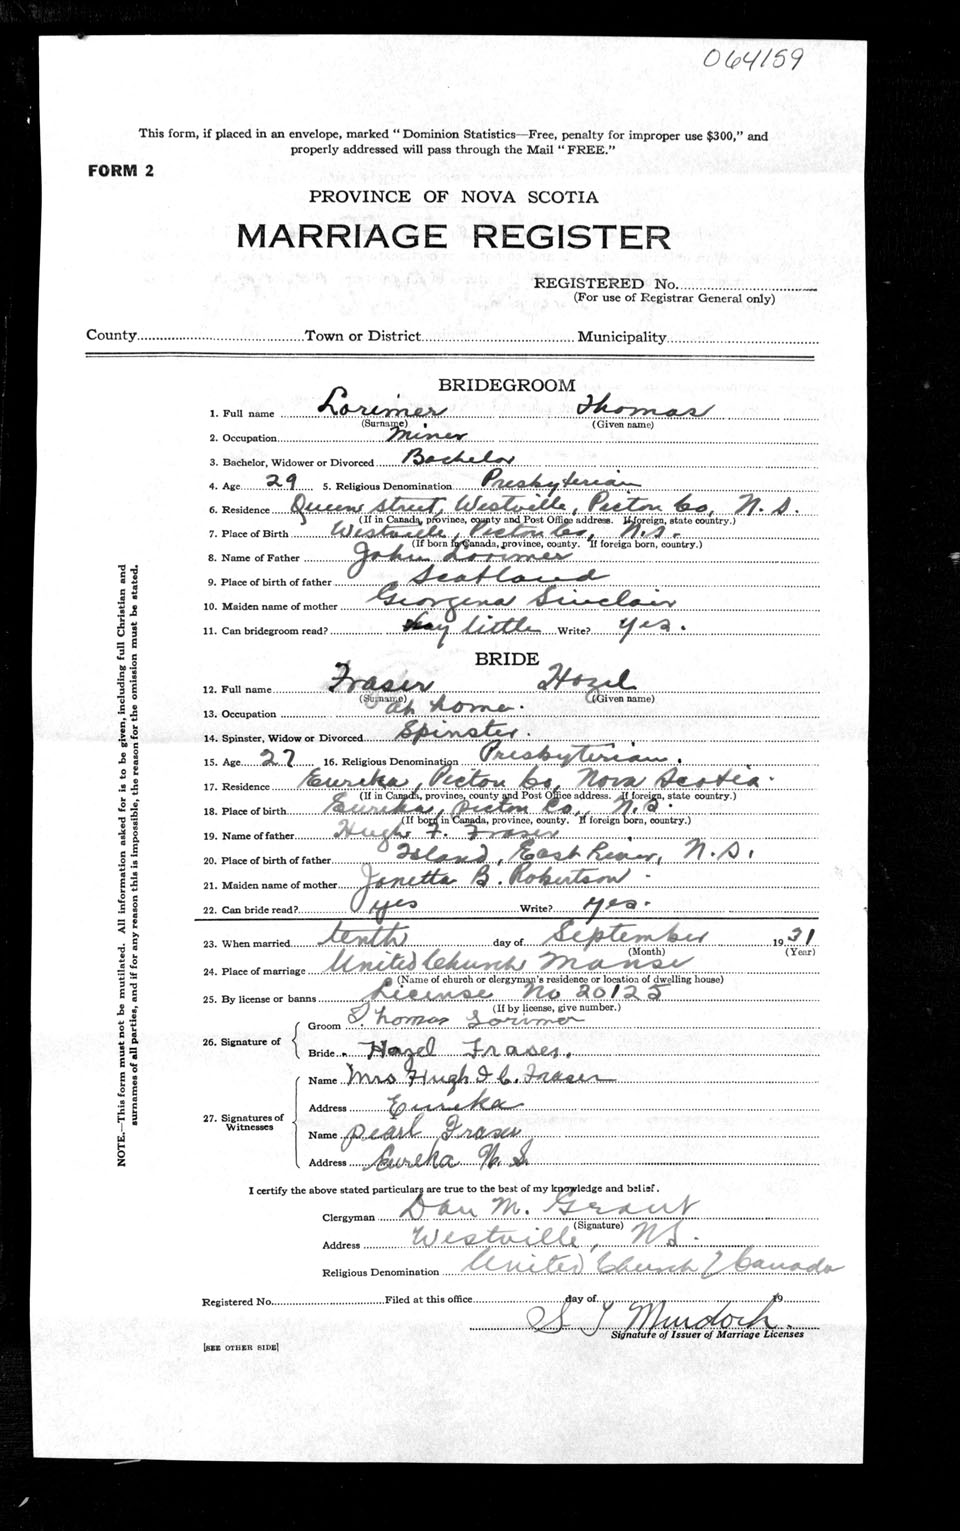 064159
This form, if placed in an envelope, marked "Dominion Statistics—Free, penalty for improper use $300," and
properly addressed will pass through the Mail "FREE."
FORM 2
PROVINCE OF NOVA SCOTIA
MARRIAGE REGISTER
REGISTERED No.
(For use of Registrar General only)
County Town or District Municipality
BRIDEGROOM
1. Full name Lorimer Thomas
(Surname) (Given name)
2. Occupation Miner
3. Bachelor, Widower or Divorced Bachelor
4. Age 29 5. Religious Denomination Presbyterian
6. Residence Queen Street, Westville, Pictou Co, N.S.
(If in Canada, province, county and Post Office address. If foreign, state country.)
7. Place of Birth Westville, Pictou Co, N.S.
(If born in Canada, province, county. If foreign born, country.)
8. Name of Father John Lorimer
9. Place of birth of father Scotland
10. Maiden name of mother Georgena Sinclair
11. Can bridegroom read? little Write? Yes.
BRIDE
12. Full name Fraser Hazel
(Surname) (Given name)
13. Occupation at home.
14. Spinster, Widow or Divorced Spinster.
15. Age 27 16. Religious Denomination Presbyterian.
17. Residence Eureka, Pictou Co, Nova Scotia.
(If in Canada, province, county and Post Office address. If foreign, state country.)
18. Place of birth Eureka, Pictou Co, N.S.
(If born in Canada, province, county. If foreign born, country.)
19. Name of father Hugh F. Fraser
20. Place of birth of father Island, East River, N.S.
21. Maiden name of mother Janetta B. Robertson.
22. Can bride read? yes Write? yes.
23. When married tenth day of September 1931
(Month) (Year)
24. Place of marriage United Church Manse
(Name of church or clergyman's residence or location of dwelling house)
25. By license or banns License No 20125
(If by license, give number.)
26. Signature of
Groom Thomas Lorimer
Bride Hazel Fraser.
27. Signatures of Witnesses
Name Mrs Hugh F. C. Fraser
Address Eureka
Name Pearl Fraser
Address Eureka N. S.
I certify the above stated particulars are true to the best of my knowledge and belief.
Clergyman Dan M. Grant
(Signature)
Address Westville, NS.
Religious Denomination United Church of Canada
Registered No. Filed at this office day of 19
S Murdoch
Signature of Issuer of Marriage Licenses
[SEE OTHER SIDE]
NOTE.—This form must not be mutilated. All information asked for is to be given, including full Christian and
surnames of all parties, and if for any reason this is impossible, the reason for the omission must be stated.